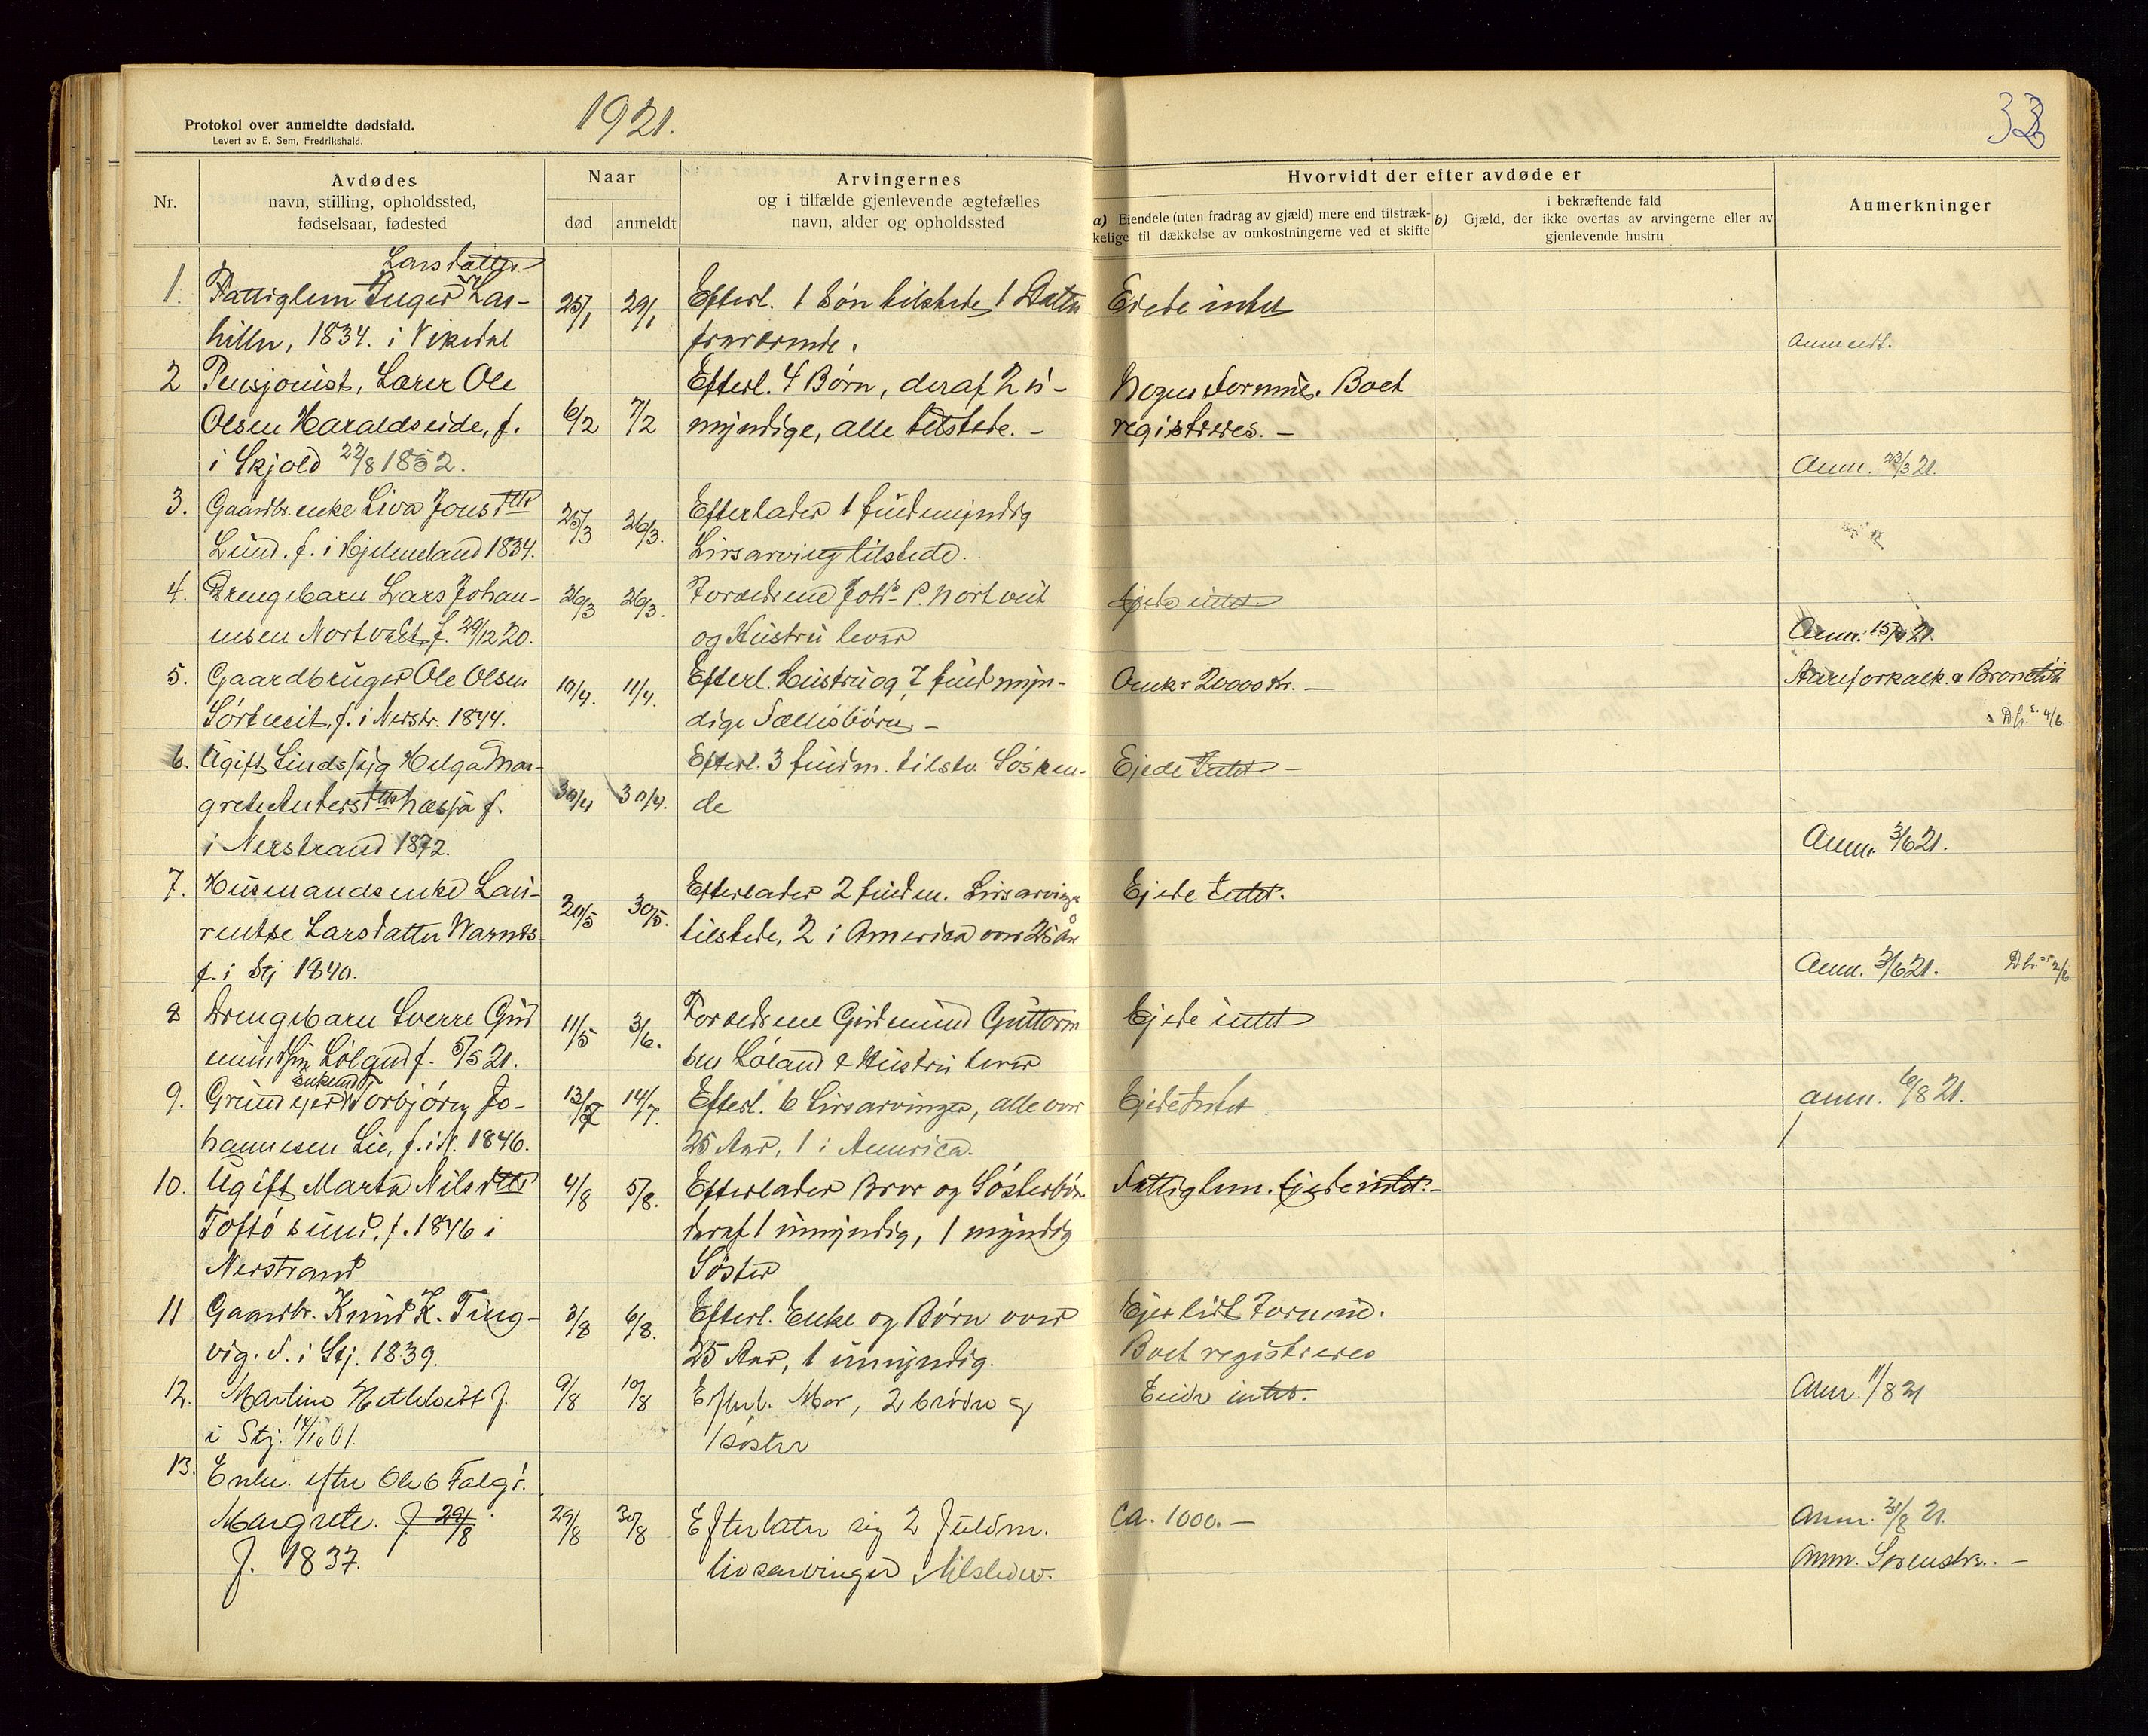 Protokol over anmeldte dødsfald.
Levert av E. Sem, Fredrikshald.
1921.
33
Nr.
Avdødes
navn, stilling, opholdssted,
fødselsaar, fødested
Naar
død
anmeldt
Arvingernes
og i tilfælde gjenlevende ægtefælles
navn, alder og opholdssted
Hvorvidt der efter avdøde er
a) Eiendele (uten fradrag av gjæld) mere end tilstræk-
kelige til dækkelse av omkostningerne ved et skifte
i bekræftende fald
b) Gjæld, der ikke overtas av arvingerne eller av
gjenlevende hustru
Anmerkninger
Larsdatter
1. Fattiglem Inger Las-
hillen, 1834. i Vikedal
25/1 29/1
Efterl. 1 Søn tilstede, 1 Datter
fraværende.
Eiede intet
Anmeldt.
2 Pensjonist, Lærer Ole
Olsen Haraldseide, f.
i Skjold 22/8 1852.
6/2 7/2
Efterl. 4 Børn, deraf 2 u-
myndige, alle tilstede. -
Nogen Formue. Boet
registreres. -
Anm. 23/3 21.
3. Gaardbr.enke Liva Jonsdtr
Lund. f. i Hjelmeland 1834.
25/3 26/3.
Efterlader 1 fuldmyndig
Livsarving tilstede.
4. Drengebarn Lars Johan-
nesen Nortveit, f. 29/12 20.
26/3 26/3.
Forældrene Johs. P. Nortveit
og Hustru lever
Ejede intet
Anm. 21.
5. Gaardbruger Ole Olsen
Sørtveit, f. i Nerstr. 1844.
10/4. 11/4.
Efterl. Hustru og 7 fuldmyn-
dige Fællesbørn. -
Omkr 20000 Kr. -
Aareforkalk. & Bronchit
4/6
6. Ugift Sindssyg Helga Mar-
grete Andersdtr
i Nerstrand 1872.
30/4 30/4.
Efterl. 3 fuldm. tilstv. Søsken-
de
Ejede Intet -
Anm. 3/6 21.
7. Husmandsenke Lau-
rentse Larsdatter
f. i Stj 1840.
20/5 30/5.
Efterlader 2 fuldm. Livsarvinge
tilstede, 2 i America over 25 År
Ejede Intet.
Anm. 3/6 21.
2/6
8 Drengebarn Sverre Gud
mundsen Løland f. 5/5 21.
11/5 3/6.
Forældrene Gudmund Guttorm
sen Løland & Hustru lever
Ejede intet
Enkemd
9. Grundejer Torbjørn Jo-
hannesen Lie, f. i N. 1846.
13/7 14/7.
Efterl. 6 Livsarvinger, alle over
25 Aar, 1 i America.
Ejede Intet
anm. 6/8 21.
10. Ugift Marta Nilsdtr
Toftøsund, f. 1846 i
Nerstrand
4/8 5/8.
Efterlader Bror og Søsterbørn
deraf 1 umyndig, 1 myndig
Søster
Fattiglem. Ejede intet. -
11 Gaardbr. Knud K. Ting-
vig. f. i Stj. 1839.
3/8 6/8.
Efterl. Enke og Børn over
25 Aar, 1 umyndig.
Ejer lidt Formue.
Boet registreres
12. Martin f.
i Stj. 01.
9/8 10/8
Efterl. Mor, 2 brødre og
1 søster
Eiede intet.
Anm. 11/8 21
13. Enke efter Ole O
Margrete. f 29/8
f. 1837.
29/8 30/8
Efterlater sig 2 fuldm.
livsarvinger, tilstede.
Ca. 1000. -
Anm. 31/8 21.
Anm. Sorenskr. -